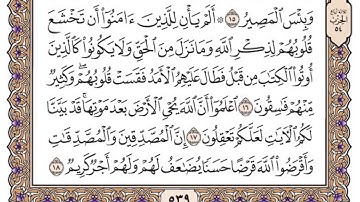 وَبِئْسَ ٱلْمَصِيرُ ١٥ أَلَمْ يَأْنِ لِلَّذِينَ ءَامَنُوٓا۟ أَن تَخْشَعَ
قُلُوبُهُمْ لِذِكْرِ ٱللَّهِ وَمَا نَزَلَ مِنَ ٱلْحَقِّ وَلَا يَكُونُوا۟ كَٱلَّذِينَ
أُوتُوا۟ ٱلْكِتَٰبَ مِن قَبْلُ فَطَالَ عَلَيْهِمُ ٱلْأَمَدُ فَقَسَتْ قُلُوبُهُمْ ۖ وَكَثِيرٌ
مِّنْهُمْ فَٰسِقُونَ ١٦ ٱعْلَمُوٓا۟ أَنَّ ٱللَّهَ يُحْىِ ٱلْأَرْضَ بَعْدَ مَوْتِهَا ۚ قَدْ بَيَّنَّا
لَكُمُ ٱلْءَايَٰتِ لَعَلَّكُمْ تَعْقِلُونَ ١٧ إِنَّ ٱلْمُصَّدِّقِينَ وَٱلْمُصَّدِّقَٰتِ
وَأَقْرَضُوا۟ ٱللَّهَ قَرْضًا حَسَنًا يُضَٰعَفُ لَهُمْ وَلَهُمْ أَجْرٌ كَرِيمٌ ١٨
٥٣٩